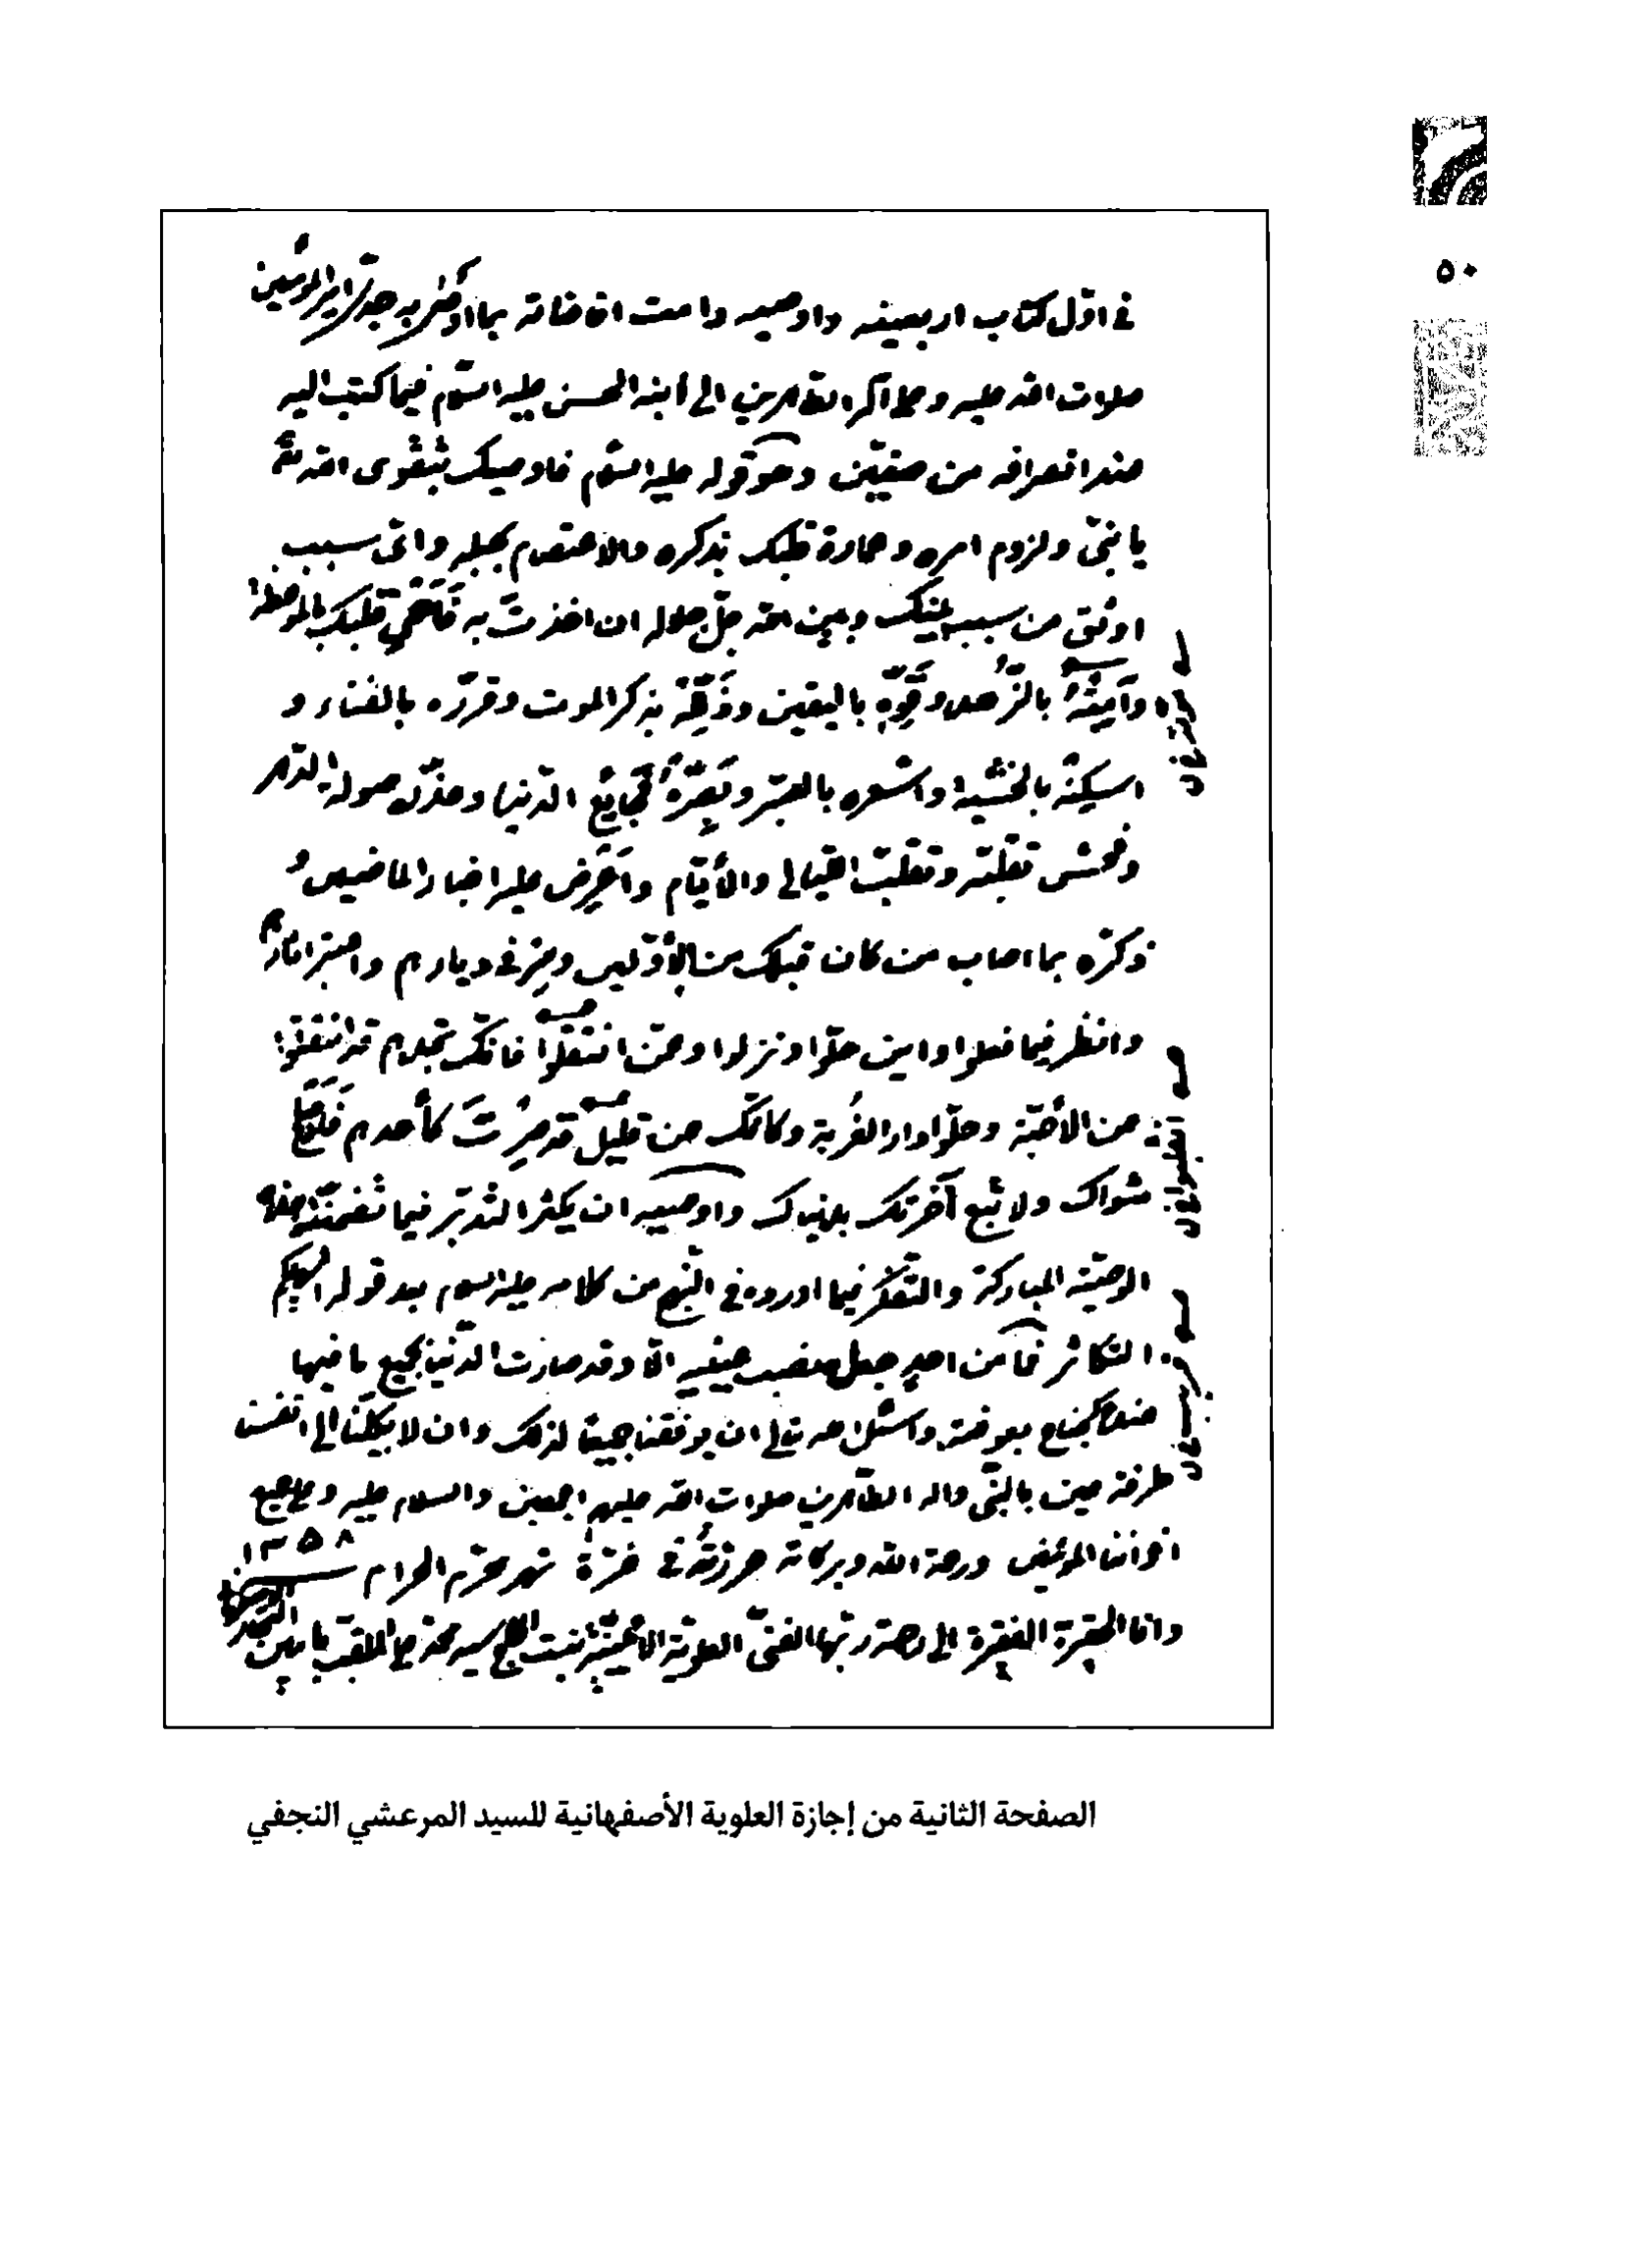 ٥٠
في اوّل كتاب اربعينه واوصيه دامت افاضاته بما اوصى به جدى امير المؤمنين
صلوات الله عليه وعلى آله الطاهرين الى أبنه الحسن عليه السلام فيما كتب اليه
عند انصرافه من صفّين وهو قوله عليه السلام فاوصيك بتقوى الله
يا بنىّ ولزوم امره وعمارة قلبك بذكره والاعتصام بحبله واىّ سبب
اوثق من سبب بينك وبين الله جلّ جلاله ان اخذت به فَأَحْيِ قلبك بالموعظة
وَأَمِتْهُ بالزُّهد وقَوِّهِ باليقين وذَلِّلْهُ بذكر الموت وقرّره بالفناء و
اسكِنْهُ بالخشية واشعره بالصبر وبَصِّرْهُ فجايع الدّنيا وحذّره صولة الدّهر
وفحش تقلّبه وتقلّب الليالي والأيّام وأعْرِض عليه اخبار الماضين و
ذكّره بما اصاب من كان قبلك من الأوّلين وسِرْ في ديارهم واعتبر آثارهم
وانظر فيما فعلوا واين حلّوا ونزلوا وعمّن انتقلوا فانّك تجدهم قد انتقلوا
عن الأحبّة وحلّوا دار الغُربة وكانّك عن قليل قد صِرْتَ كأحدهم فَأَصْلِحْ
مثواك ولا تبع آخرتك بدنياك واوصيه ان يكثر التدبّر فيما تضمنته هذه
الوصيّة المباركة والتفكّر فيما اورده في النّهج من كلامه عليه السلام بعد قوله الهيكم
التكاثر فما من احدٍ جعل نصب عينيه الّا وقد صارت الدّنيا بجميع ما فيها
عنده كجناح بعوضة واسئل الله تعالى ان يوفقنا جميعًا لذلك وان لا يكلنا الى انفسنا
طرفة عين بالنّبى واله الطّاهرين صلوات الله عليهم اجمعين والسلام عليه وعلى جميع
اخواننا المؤمنين ورحمة الله وبركاته حررته في غرّة شهر محرّم الحرام ١٣٥٨
وانا الحقيرة الفقيرة الى رحمة ربّها الغنىّ العلويّة الأمينيّة بنت الحاج سيد محمد على الملقب بامين
الصفحة الثانية من إجازة العلوية الأصفهانية للسيد المرعشي النجفي